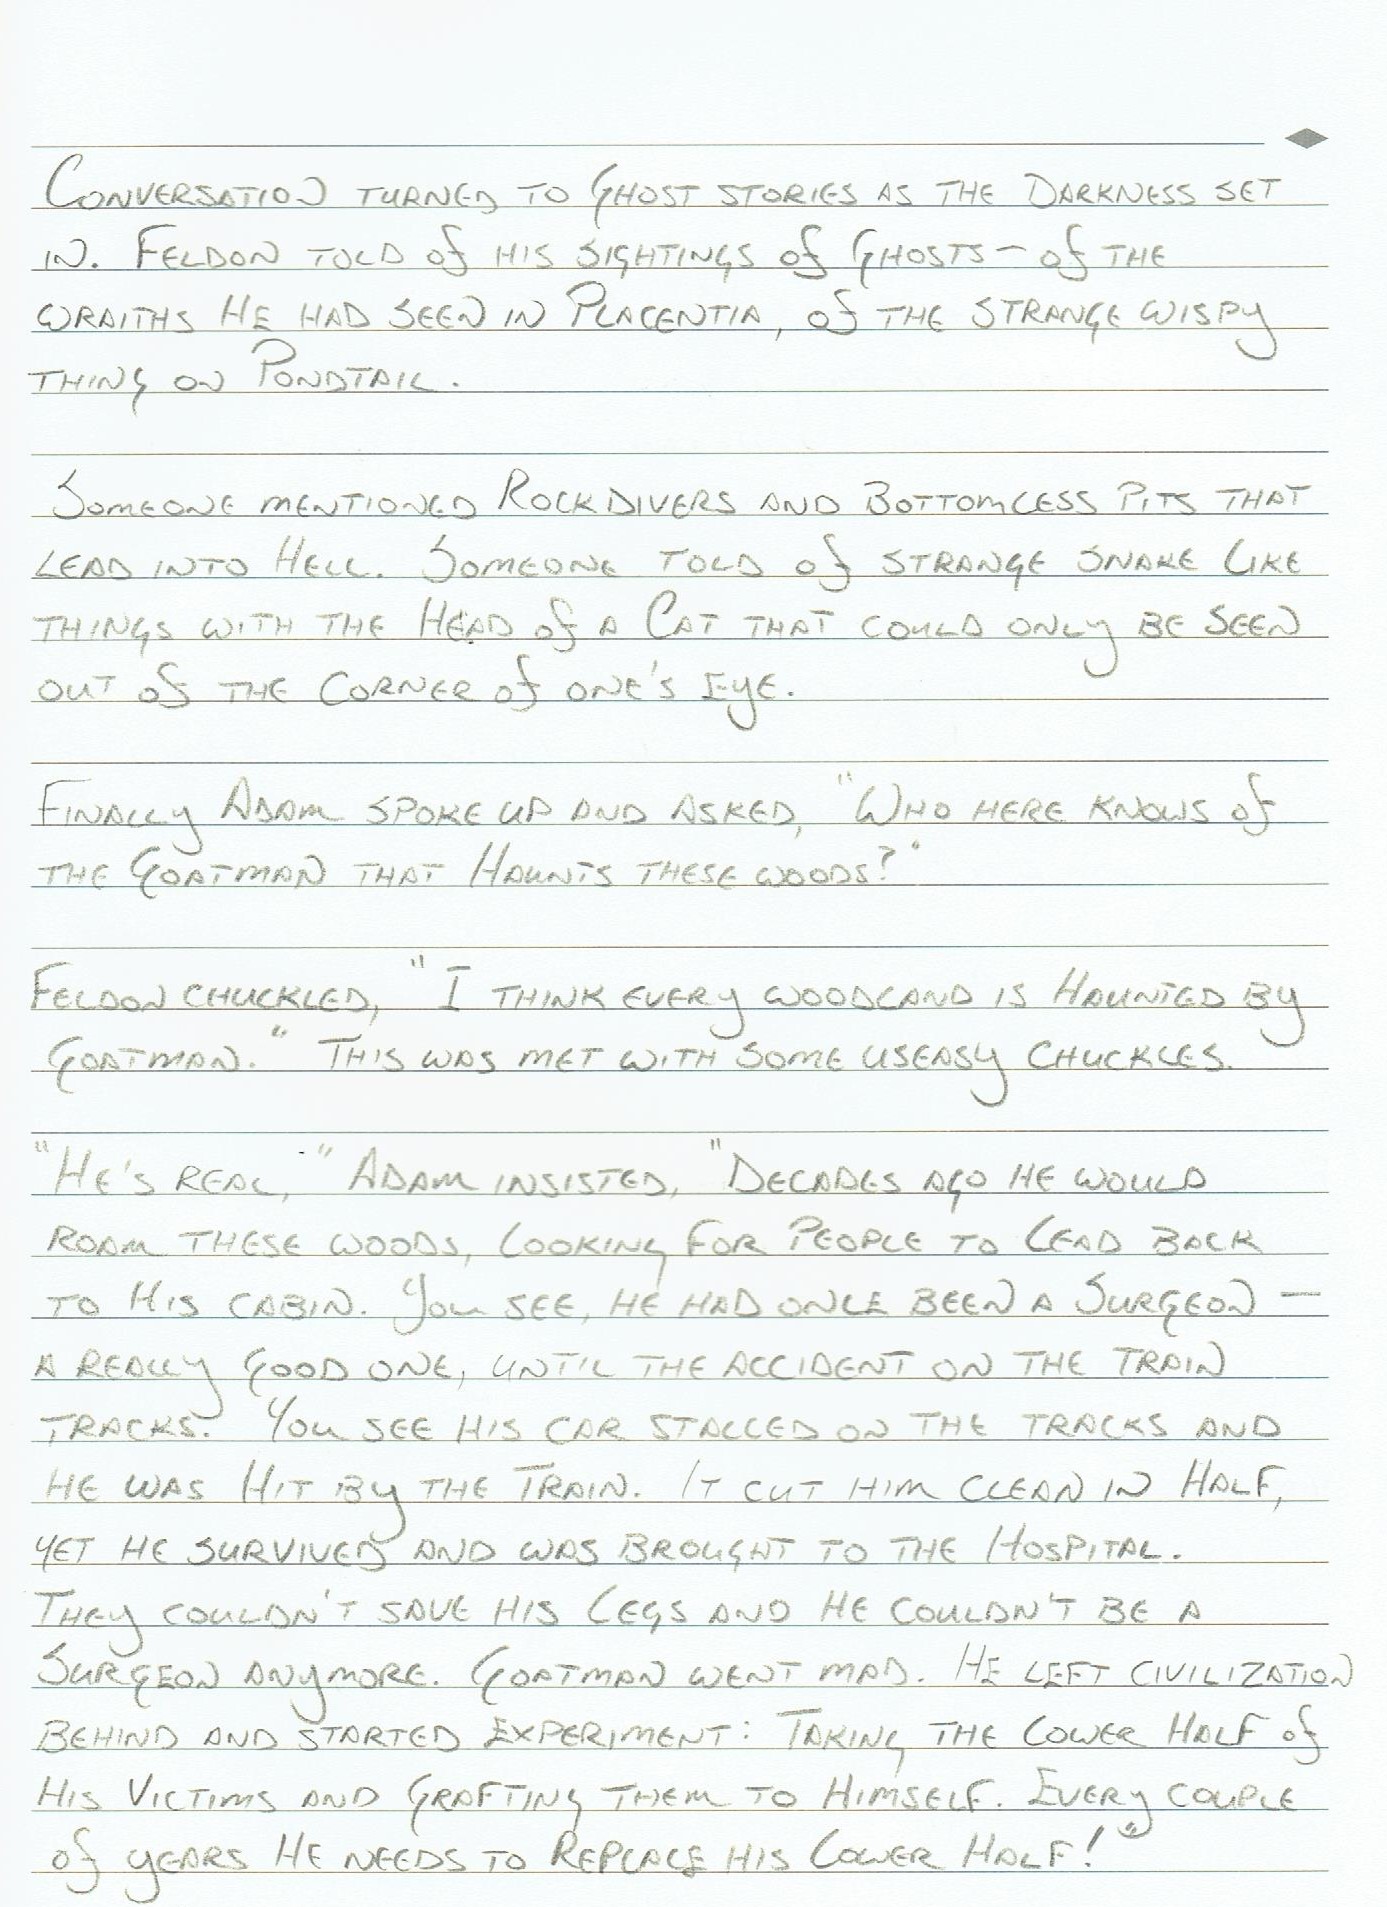 Conversation turned to Ghost stories as the Darkness set
in. Feldon told of his sightings of Ghosts - of the
wraiths He had seen in Placentia, of the strange wispy
thing on Pondtail.
Someone mentioned Rockdivers and Bottomless Pits that
lead into Hell. Someone told of strange snake like
things with the Head of a Cat that could only be seen
out of the corner of one's Eye.
Finally Adam spoke up and asked, "Who here knows of
the Goatman that Haunts these woods?"
Feldon chuckled, "I think every woodland is Haunted by
Goatman." This was met with some useasy chuckles.
"He's real," Adam insisted, "Decades ago he would
roam these woods, looking for People to Lead back
to His cabin. You see, he had once been a Surgeon -
a really good one, until the accident on the train
tracks. You see his car stalled on the tracks and
he was Hit by the Train. It cut him clean in Half,
yet he survived and was brought to the Hospital.
They couldn't save his Legs and he couldn't be a
Surgeon anymore. Goatman went mad. He left civilization
behind and started experiment: Taking the Lower Half of
His Victims and Grafting them to Himself. Every couple
of years He needs to Replace his Lower Half!"